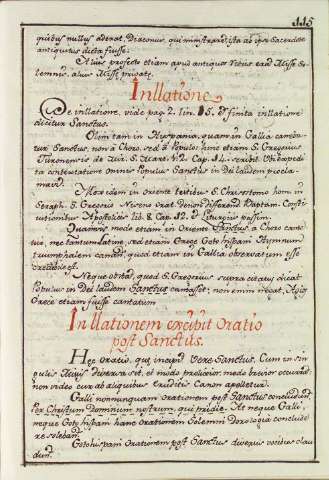 115
quibus nullus aderat Diaconus, qui ministraret, ista ab ipso Sacerdote
antiquitus dicta fuisse.
Aliis profecto etiam apud antiquos Vetus erat Missæ So-
lemnis, aliis Missæ privatæ.
Inllatione
De inllatione, vide pag. 2. lin. 15. Et finita inllatione
dicitur Sanctus.
Olim tam in Hispania, quam in Gallia canebatur
tur Sanctus, non a Choro, sed à Populo. hinc etiam S. Gregorius
Turonensis de S. Mart. Cap. 14. scribit. Ubi expedita
contestatione omnis Populus Sanctus in Dei laudem procla-
mavit.
Mos idem in Oriente testibus S. Chrisostomo hom. in
Seraph. S. Gregorio Nisseno orat. de non differend. Baptism. Consti-
tutionibus Apostolicis lib. 8. Cap. 12. & Liturgiis passim.
Quamvis modo etiam in Oriente Sanctus a Choro cane-
tur, nec tantum latine, sed etiam Græce Gotohispani Hymnum
triumphalem canebant, quod etiam in Gallia observatum esse
credibile est.
Neque obstat, quod S. Gregorius supra citatus dicat
Populus in Dei laudem Sanctus cantasset; non enim negat, Agios
Græce etiam fuisse cantatum
Inllationem excibit Oratio
post Sanctus.
Hæc Oratio, quæ incipit Vere Sanctus, Cum in sin-
gulis Missis diversa sit, et modo prolixior modo brevior occurrat,
non video cur ab aliquibus Eruditis Canon appelletur.
Galli nonnunquam orationem post Sanctus concludunt,
Per Christum Dominum nostrum, qui pridie. At neque Galli,
neque Gotohispani hanc orationem solemni Doxologia conclude-
re solebant.
Gotohispani Orationem post Sanctus diversis vocibus clau-
dunt.